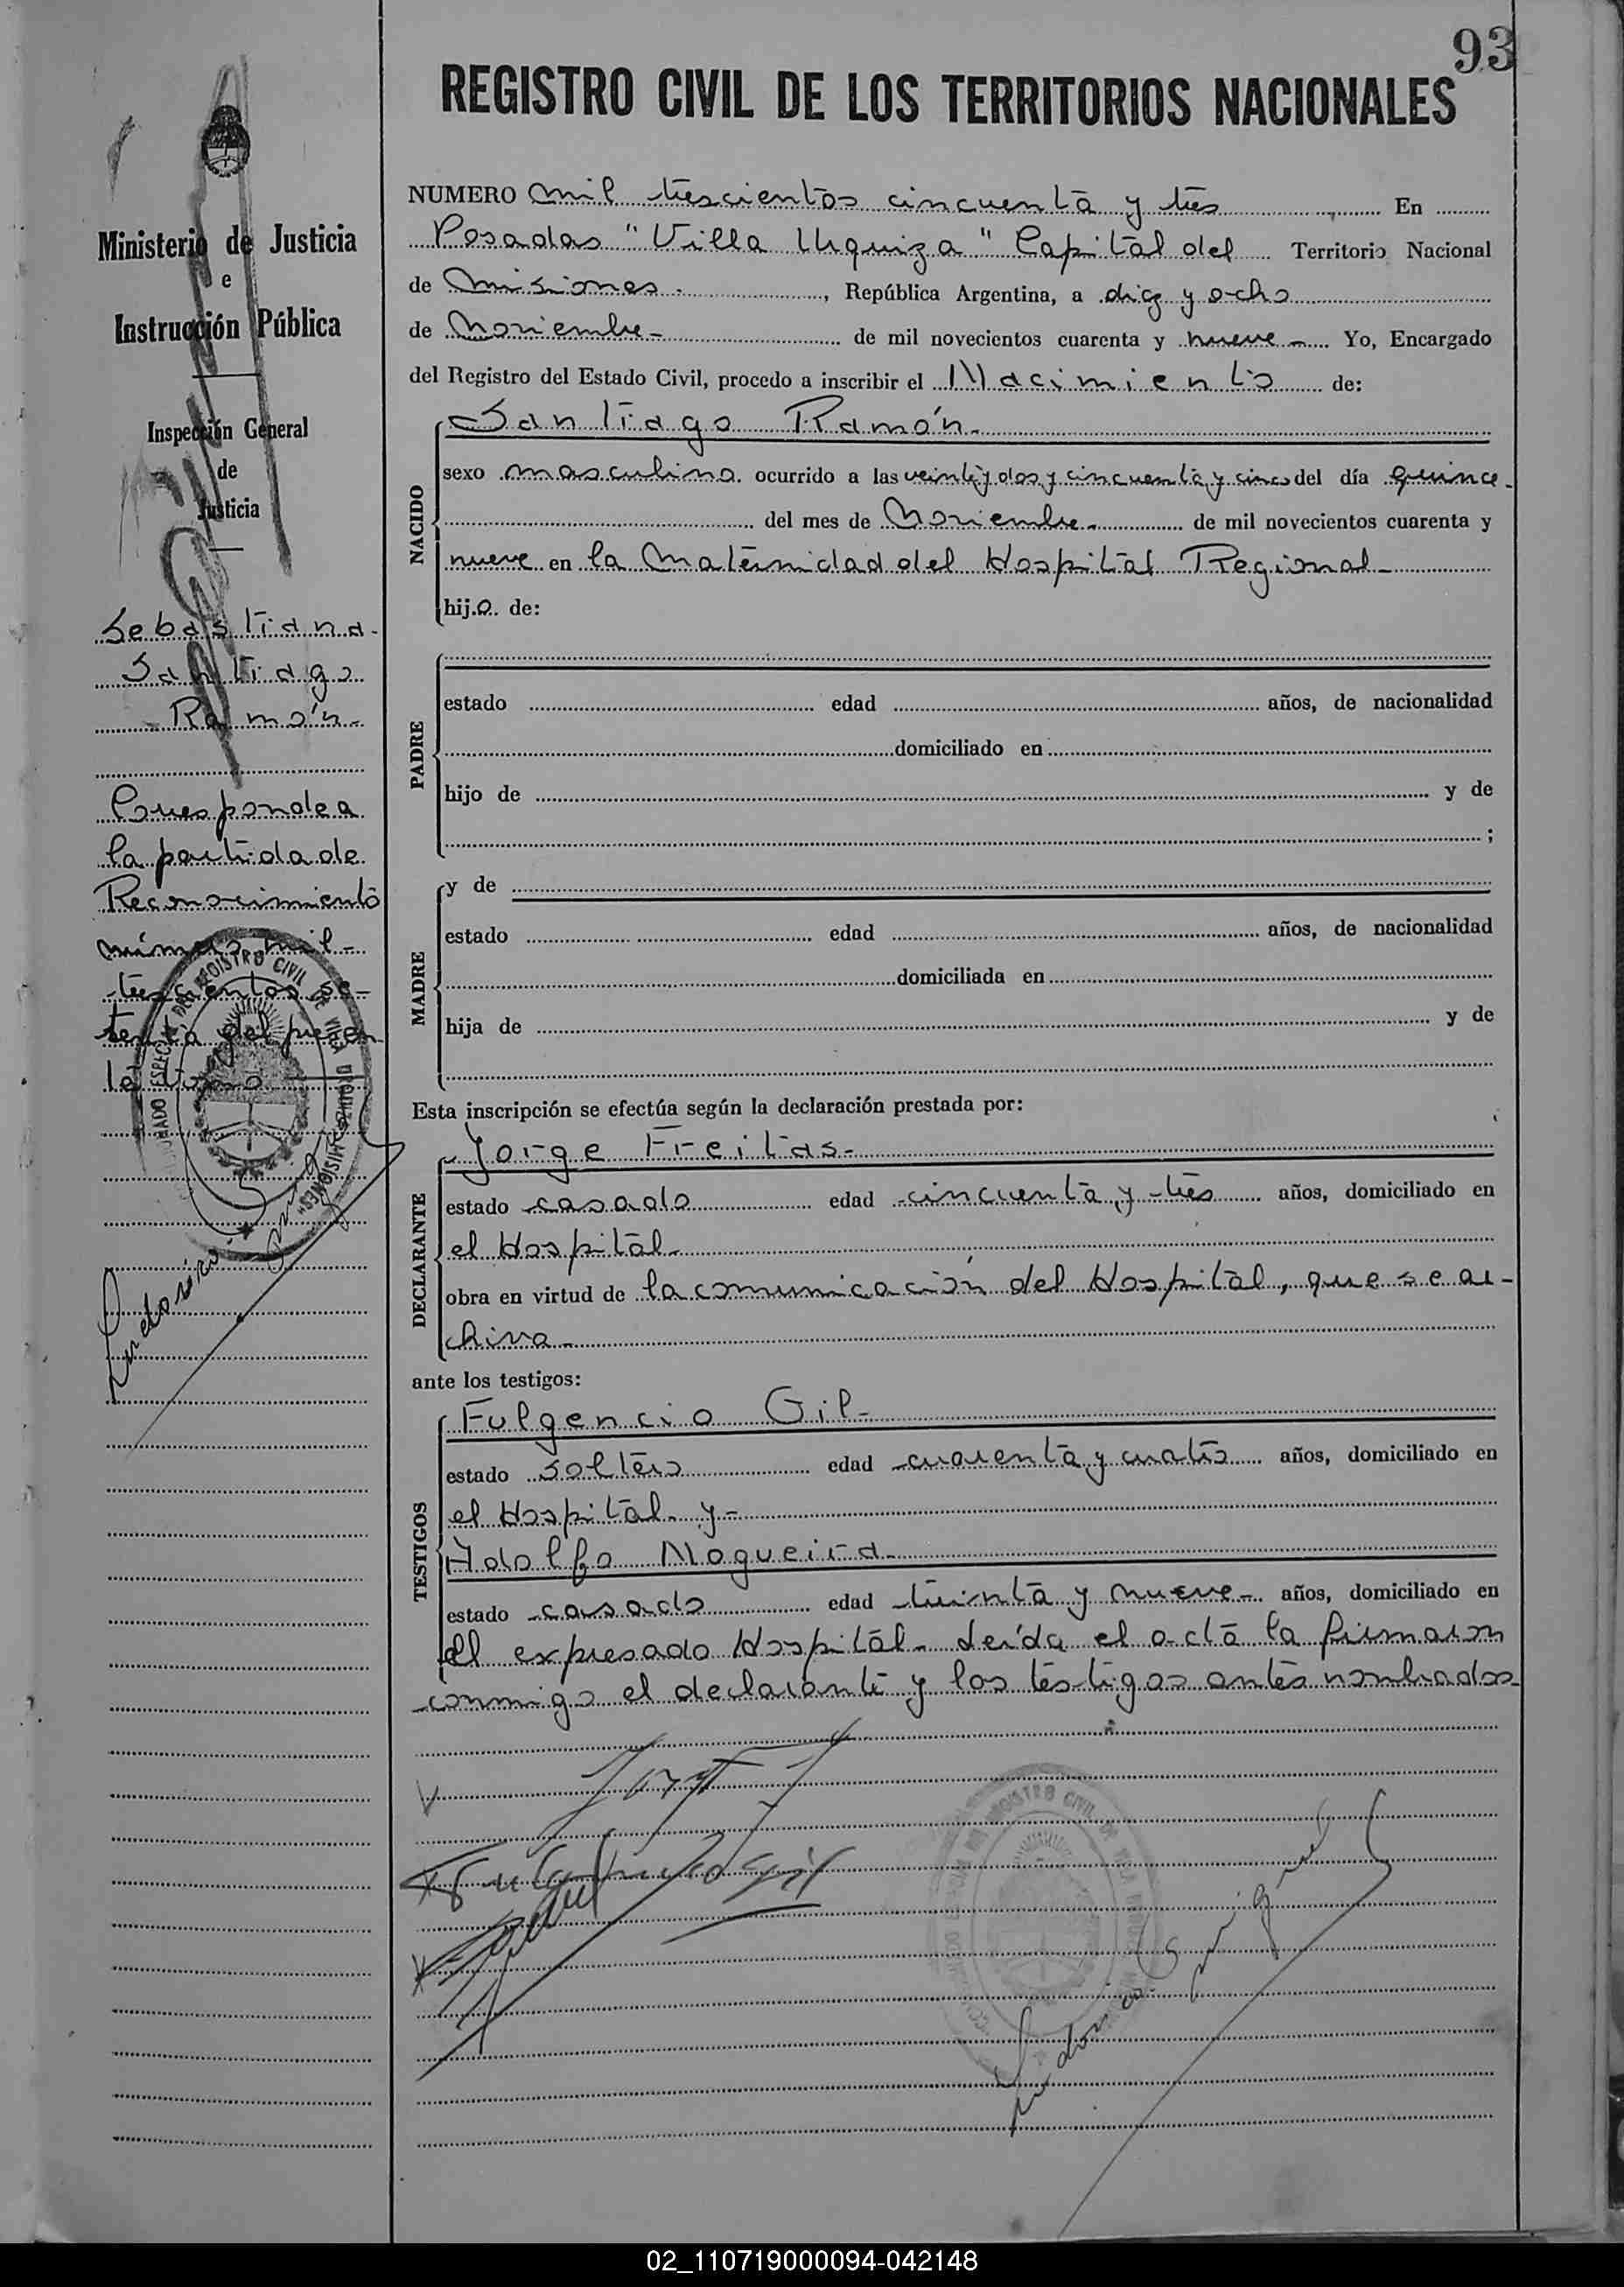 93
REGISTRO CIVIL DE LOS TERRITORIOS NACIONALES
Ministerio de Justicia
e
Instrucción Pública
Inspección General
de
Justicia
Sebastiana-
Santiago
- Ramón-
Corresponde a
la partida de
Reconocimiento
número mil-
trescientos se-
tenta del presen
te tomo
NUMERO mil trescientos cincuenta y tres En
Posadas "Villa Urquiza" Capital del Territorio Nacional
de Misiones. , República Argentina, a diez y ocho
de Noviembre- de mil novecientos cuarenta y nueve - Yo, Encargado
del Registro del Estado Civil, procedo a inscribir el Nacimiento de:
NACIDO
Santiago Ramón.
sexo masculino. ocurrido a las veinte y dos y cincuenta y cinco del día quince-
del mes de Noviembre- de mil novecientos cuarenta y
nueve en la Maternidad del Hospital Regional-
hijo de:
PADRE
estado edad años, de nacionalidad
domiciliado en
hijo de y de
;
MADRE
y de
estado edad años, de nacionalidad
domiciliada en
hija de y de
Esta inscripción se efectúa según la declaración prestada por:
DECLARANTE
Jorge Freitas-
estado casado edad cincuenta y tres años, domiciliado en
el Hospital-
obra en virtud de la comunicación del Hospital, que se ar-
chiva-
ante los testigos:
TESTIGOS
Fulgencio Gil-
estado soltero edad cuarenta y cuatro años, domiciliado en
el Hospital- y-
Adolfo Nogueira-
estado casado edad treinta y nueve- años, domiciliado en
el expresado Hospital- Leída el acta la firmaron
conmigo el declarante y los testigos antes nombrados-
02_110719000094-042148